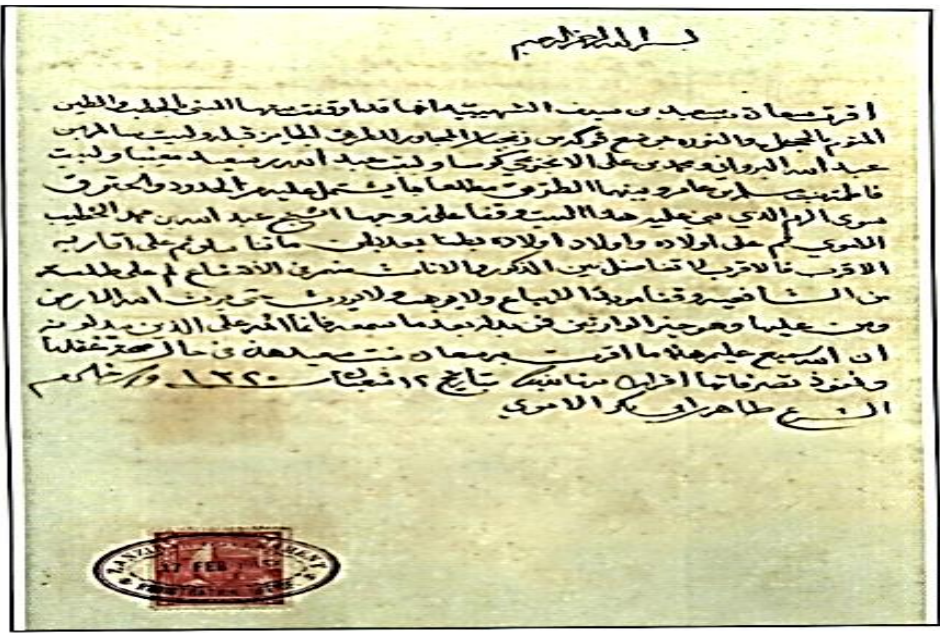 بسم الله الرحمن الرحيم
اقرت جهان بنت سعيد بن سيف الشهيرية انها قد اوقفت بيتها المبنى بالحطب والطين
والنوره موضع فوكدن من زنجبار المجاور للطريق الجايز قبله ولبيت سالم بن
عبد الله البرواني ومحمد بن علي ولبيت عبد الله بن سعيد ولبيت
فاطمة بنت سالم بن عامر وبينهما الطريق مطلعا بما يشتمل عليه من الحدود والحقوق
سوى الرم الذي بني عليه هذا البيت وقفا على زوجها الشيخ عبد الله بن محمد الخطيب
الاموي ثم على اولاده واولاد اولاده بطنا بعد بطن ما تناسلوا ثم على اقاربه
الاقرب فالاقرب لا تفاضل بين الذكور والاناث ثم على طلبة
من الشافعية وقفا مؤبدا لا يباع ولا يوهب ولا يورث حتى يرث الله الارض
ومن عليها وهو خير الوارثين فمن بدله بعد ما سمعه فانما اثمه على الذين يبدلونه
ان الله سميع عليم هذا ما اقرت به جهان بنت سعيد هذه في حال صحة عقلها
ونفوذ تصرفاتها اقرارا بتاريخ ١٢ شعبان ١٣٢٠
الشرع طاهر ابي بكر الاموي
ZANZI
17 FEB